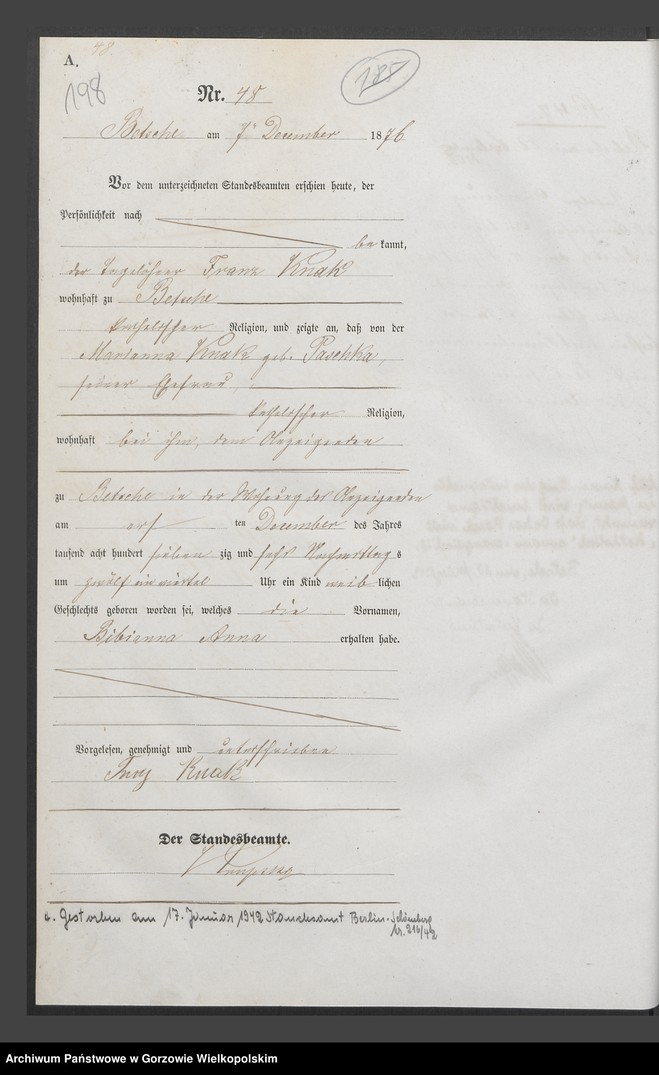 48.
A.
198
188
Nr. 48
Betsche am 7ᵗ December 1876
Vor dem unterzeichneten Standesbeamten erschien heute, der
Persönlichkeit nach
bekannt,
der Tagelöhner Franz Knak
wohnhaft zu Betsche
katholischer Religion, und zeigte an, daß von der
Marianna Knak geb. Paschka,
seiner Ehefrau,
katholischer Religion,
wohnhaft bei ihm, dem Anzeigenden
zu Betsche in der Wohnung des Anzeigenden
am ten December des Jahres
tausend acht hundert sieben zig und sechs Nachmittags
um zwölf ein viertel Uhr ein Kind weiblichen
Geschlechts geboren worden sei, welches die Vornamen,
Bibianna Anna erhalten habe.
Vorgelesen, genehmigt und unterschrieben
Franz Knak
Der Standesbeamte.
Gestorben am 17. Januar 1942 Standesamt Berlin-Schöneberg
Nr. 216/42
Archiwum Państwowe w Gorzowie Wielkopolskim